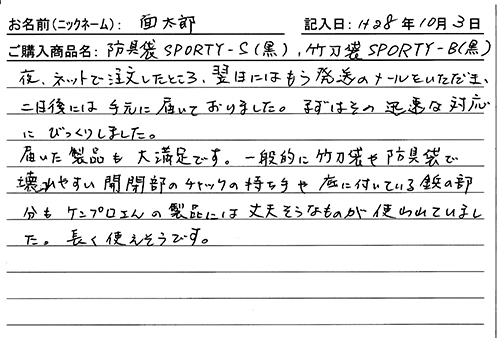 お名前(ニックネーム): 面太郎 記入日: H28年10月3日
ご購入商品名: 防具袋SPORTY-S(黒), 竹刀袋SPORTY-B(黒)
夜、ネットで注文したところ、翌日にはもう発送のメールをいただき、
二日後には手元に届いておりました。まずはその迅速な対応
にびっくりしました。
届いた製品も大満足です。一般的に竹刀袋や防具袋で
壊れやすい開閉部のチャックの持ち手や底に付いている鋲の部
分もケンプロさんの製品には丈夫そうなものが使われていまし
た。長く使えそうです。